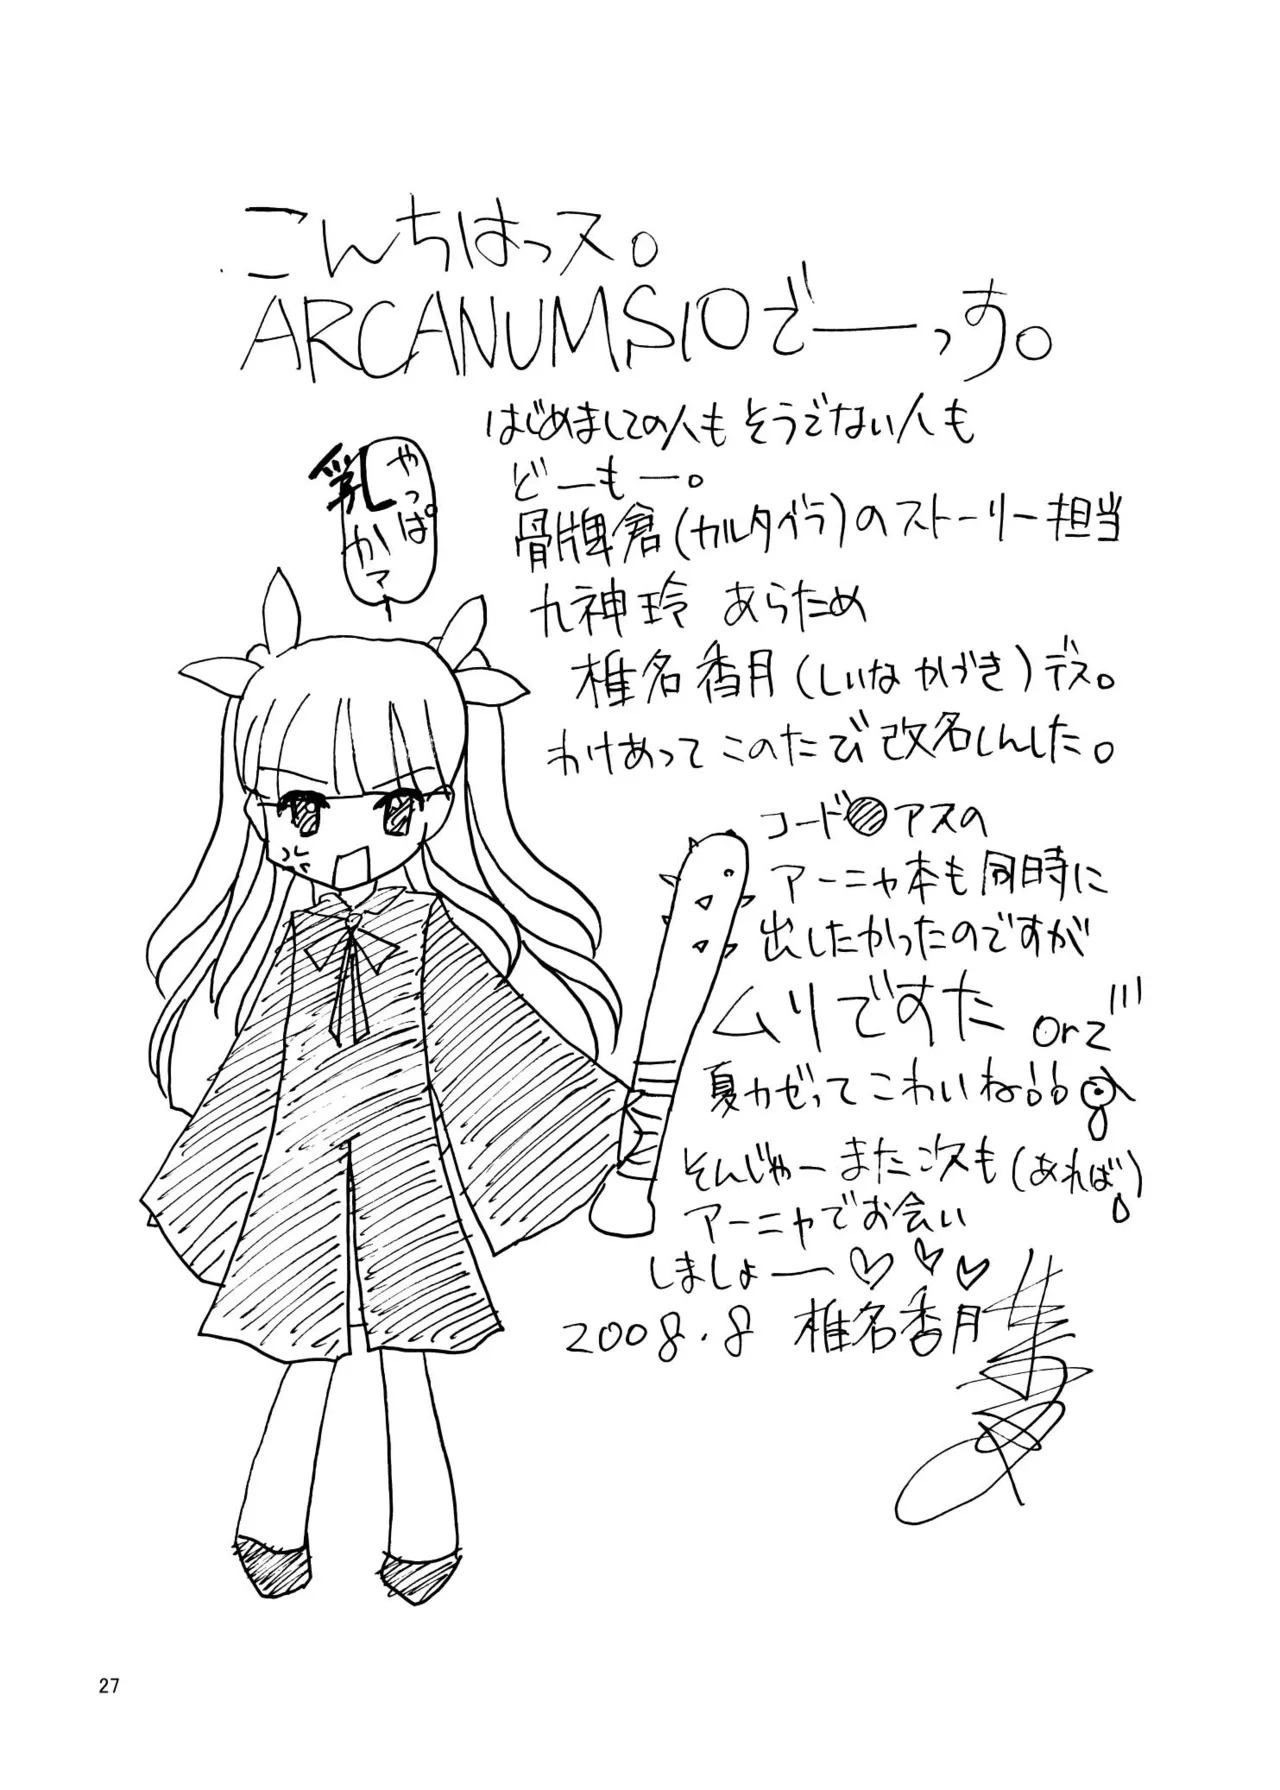 こんちはっス。
ARCANUMS10でーっす。
はじめましての人もそうでない人も
どーもー。
骨牌倉(カルタグラ)のストーリー担当
九神玲 あらため
椎名香月(しいなかづき)デス。
わけあってこのたび改名しんした。
やっぱ
乳
かァ
コード●アスの
アーニャ本も同時に
出したかったのですが
ムリですた orz
夏カゼってこわいね!!
そんじゃーまた次も(あれば)
アーニャでお会い
しましょー♡♡♡
2008.8 椎名香月
27